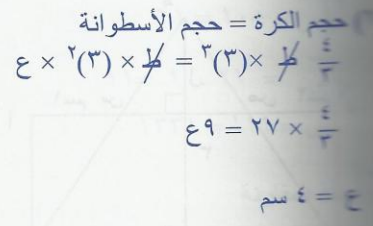 حجم الكرة = حجم الأسطوانة
٤/٣ ط × (٣)^٣ = ط × (٣)^٢ × ع
٤/٣ × ٢٧ = ٩ع
ع = ٤ سم